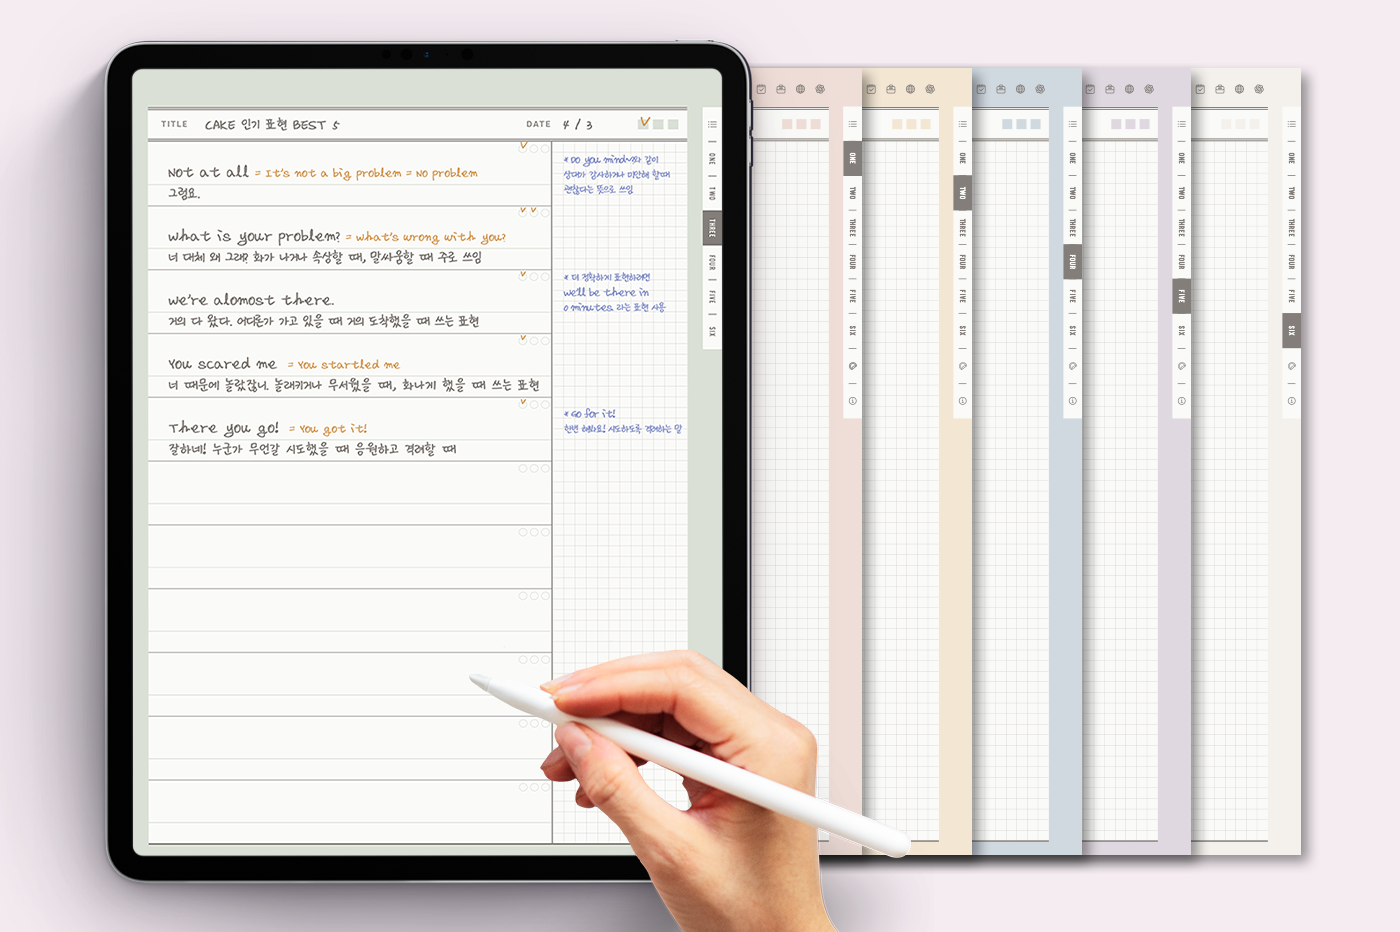 TITLE CAKE 인기 표현 BEST 5 DATE 4 / 3
Not at all = It's not a big problem = No problem
그럼요.
what is your problem? = what's wrong with you?
너 대체 왜 그래? 화가 나거나 속상할 때, 말싸움할 때 주로 쓰임
we're alomost there.
거의 다 왔다. 어딘가 가고 있을 때 거의 도착했을 때 쓰는 표현
You scared me = You startled me
너 때문에 놀랐잖니. 놀래키거나 무서웠을 때, 화나게 했을 때 쓰는 표현
There you go! = You got it!
잘하네! 누군가 무언갈 시도했을 때 응원하고 격려할 때
* Do you mind~와 같이
상대가 감사하거나 미안해 할때
괜찮다는 뜻으로 쓰임
* 더 정확하게 표현하려면
we'll be there in
0 minutes 라는 표현 사용
* Go for it!
한번 해봐요! 시도하도록 격려하는 말
ONE
TWO
THREE
FOUR
FIVE
SIX
ONE
TWO
THREE
FOUR
FIVE
SIX
ONE
TWO
THREE
FOUR
FIVE
SIX
ONE
TWO
THREE
FOUR
FIVE
SIX
ONE
TWO
THREE
FOUR
FIVE
SIX
ONE
TWO
THREE
FOUR
FIVE
SIX